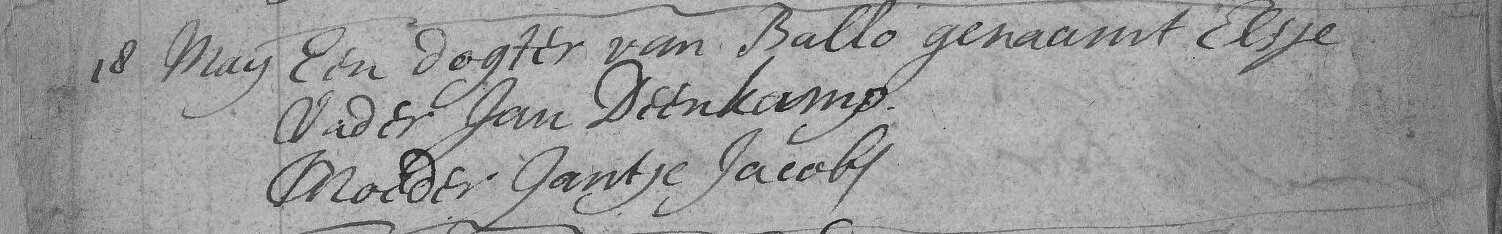 18 May Een dogter van Ballo genaamt Elsje
Vader Jan Deenkamp.
Moeder Jantje Jacobs